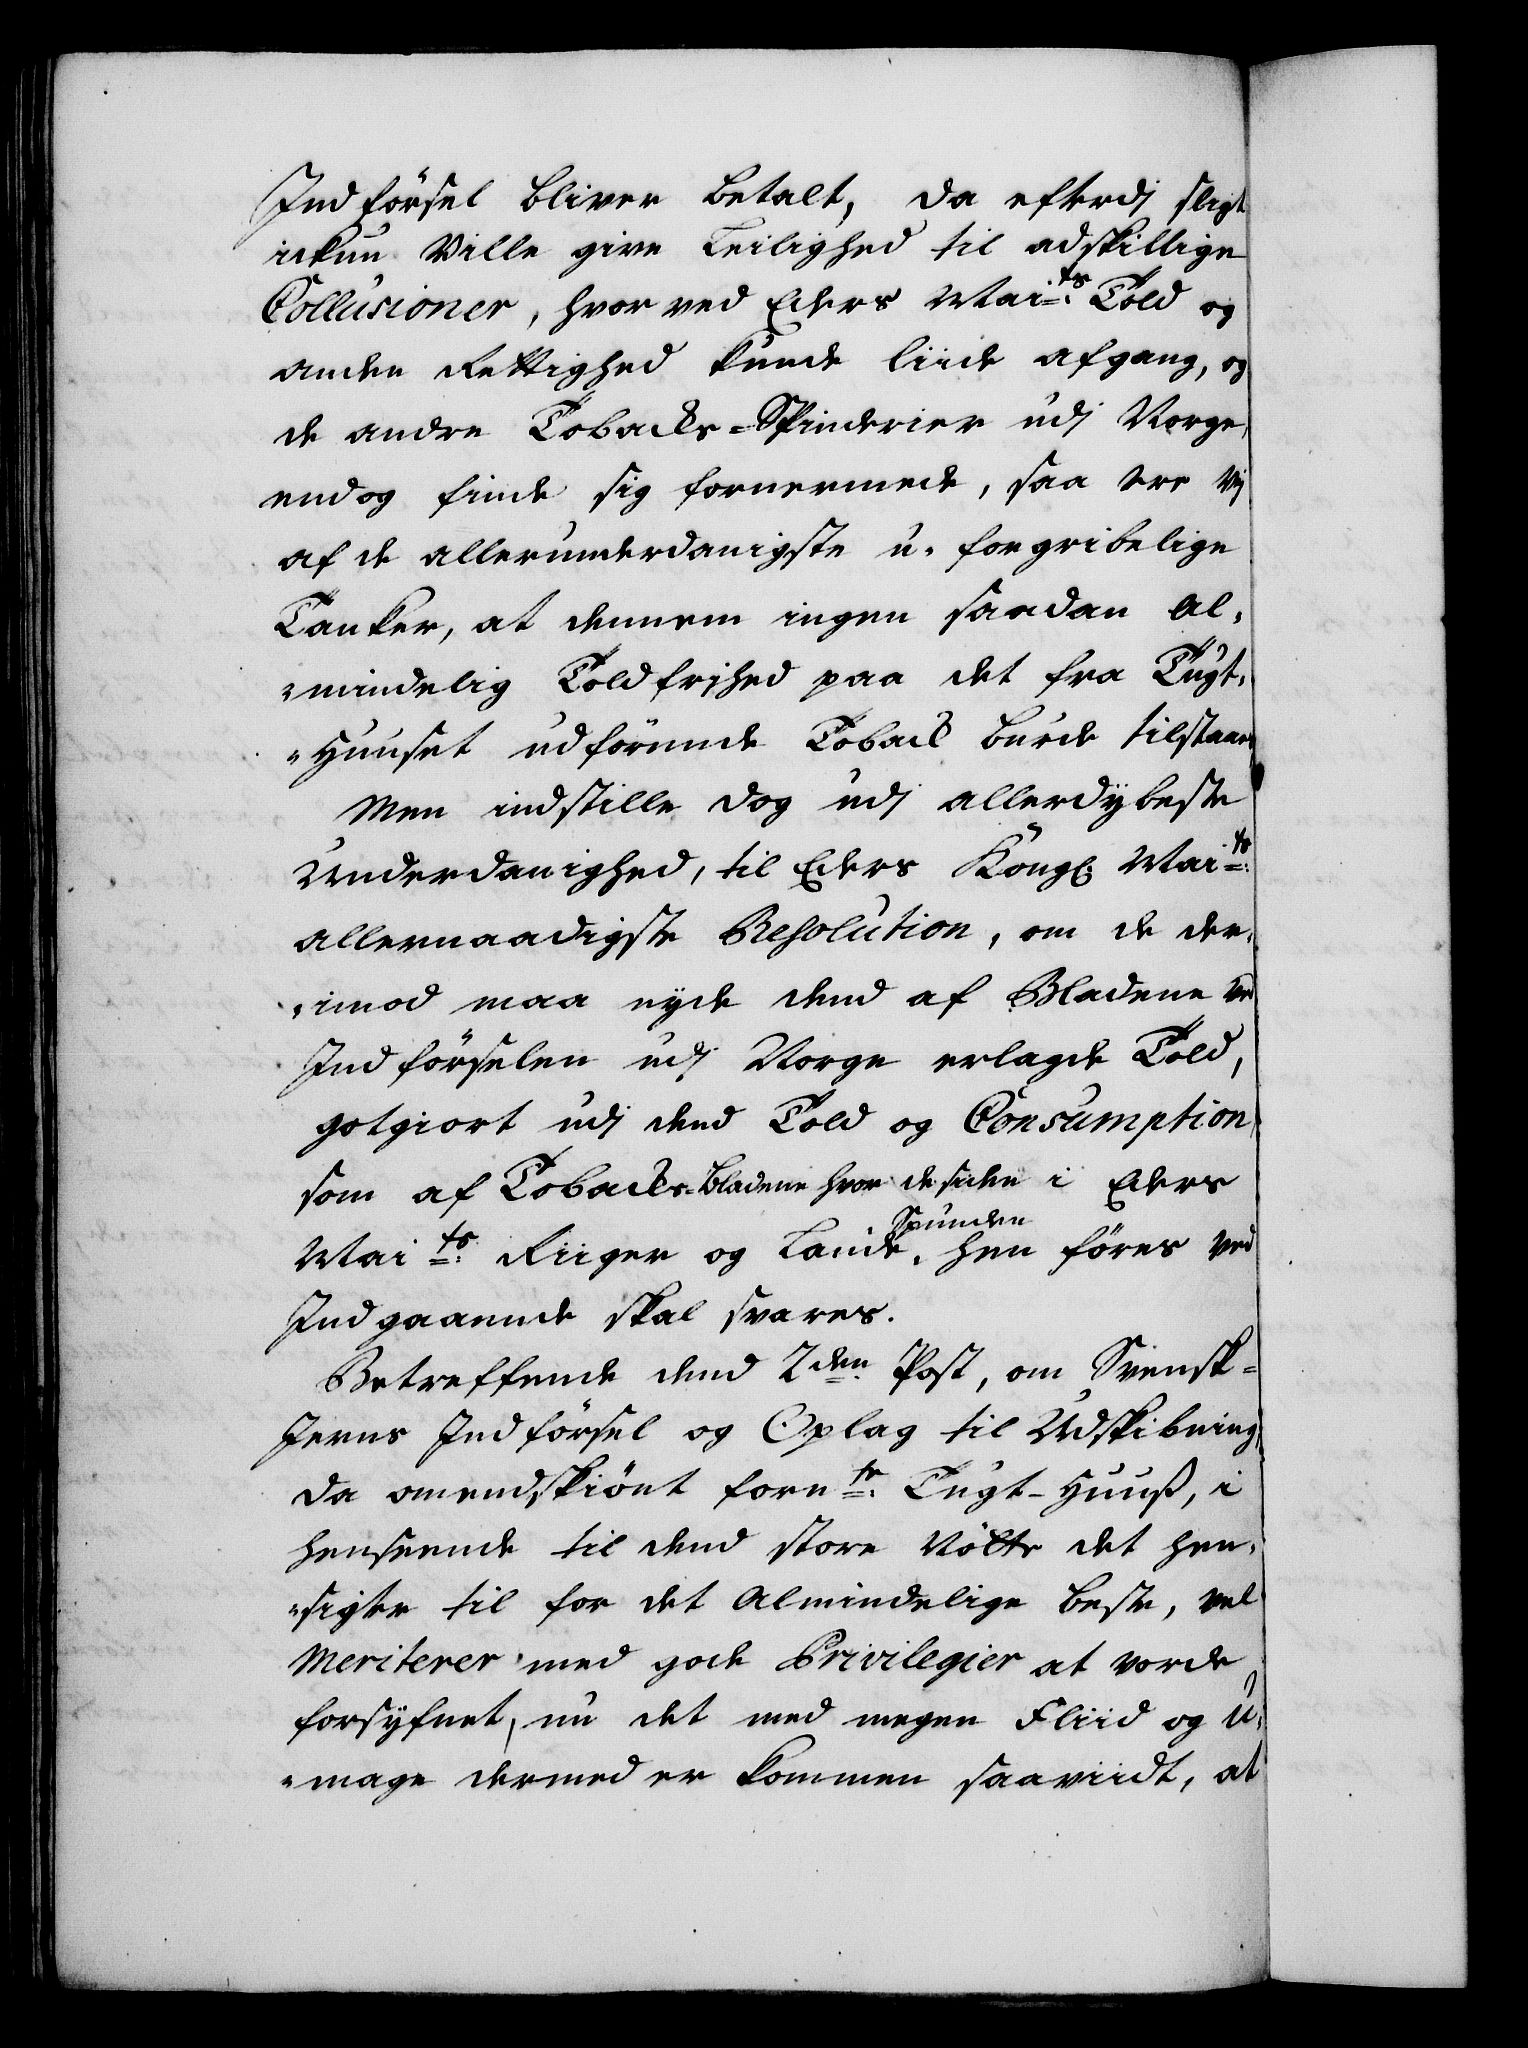 Indførsel bliver betalt, da efterdj sligt
ickun ville give Leilighed til adskillige
Collusioner, hvor ved Eders Mai:ts Told og
anden Rettighed kunde liide afgang, og
de andre Tobacks-Spinderier udj Norge,
endog finde sig fornermede, saa ere vj
af de allerunderdanigste u-forgribelige
Tanker, at dennem ingen saadan Al-
mindelig Toldfrjhed paa det fra Tugt-
Huuset udførende Toback burde tilstaaes
Men indstille dog udj allerdybeste
Underdanighed, til Eders Kongl: Mai:ts
allernaadigste Resolution, om de der-
imod maa nyde dend af Bladene ved
Indførselen udj Norge erlagde Told,
gotgiort udj dend Told og Consumption
som af Tobacks-Bladene hvor de siden i Eders
Mai:ts Riiger og Lande, Spunden hen føres ved
Indgaaende skal svares.
Betreffende dend 2den Post, om Svensk-
Jerns Indførsel og Oplag til Udskibning,
da omendskiønt forn:te Tugt-Huuß, i
henseende til dend store Nøtte det hen-
sigter til for det Almindelige beste, vel
Meriterer med gode Privilegier at vorde
forsyfnet, nu det med megen Fliid og U-
mage dermed er kommen saaviidt, at